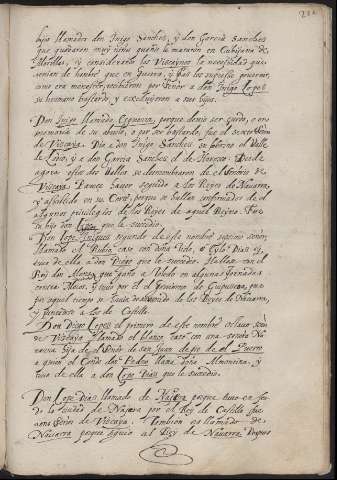 211
hijos llamados don Iñigo Sanches, y don Garcia Sanches
que quedaron muy niños quando le mataron en Cubijana de
Morillas, y considerando los Viscaynos la necesidad que
tenian de hombre que en guerra, y paz los supiesse governar,
como era menester, recibieron por Señor a don Iñigo Lopes
su hermano bastardo, y excluyeron a sus hijos.
Don Iñigo llamado Esquerra, porque devio ser surdo, o en
memoria de su abuelo, o por ser bastardo, fue el sexto Señor
de Viscaya. Dio a don Iñigo Sanches su sobrino el Valle
de Llodio, y a don Garcia Sanches el de Orosco. Desde
agora estos dos Valles se desmembraron de el Señorio de
Viscaya. Parece haver seguido a los Reyes de Navarra,
y assistido en su Corte, porque se hallan confirmados de el
algunos privilegios de los Reyes de aquel Reyno. Fue
su hijo don Lope que le sucedio.
Don Lope Iñigues segundo de este nombre septimo Señor,
llamado el Rubio, caso con doña Ticlo, o Tyclo Dias y
tuvo de ella a don Diego que le sucedio. Hallose con el
Rey don Alonso que gano a Toledo en algunas jornadas
contra Moros, y tuvo por el el govierno de Guipuscoa, que
por aquel tiempo se havia desavenido de los Reyes de Navarra,
y juntadose a los de Castilla.
Don Diego Lopes el primero de este nombre octavo Señor
de Viscaya llamado el blanco, caso con una señora Na-
varra hija de el Señor de San Juan de pie de el Puerto
a quien el Conde don Pedro llama doña Almentina, y
tuvo de ella a don Lope Dias que le sucedio.
Don Lope Dias llamado de Najara porque tuvo en feu-
do la ciudad de Najara por el Rey de Castilla fue
nono Señor de Viscaya. Tambien es llamado de
Navarra porque siguio al Rey de Navarra despues